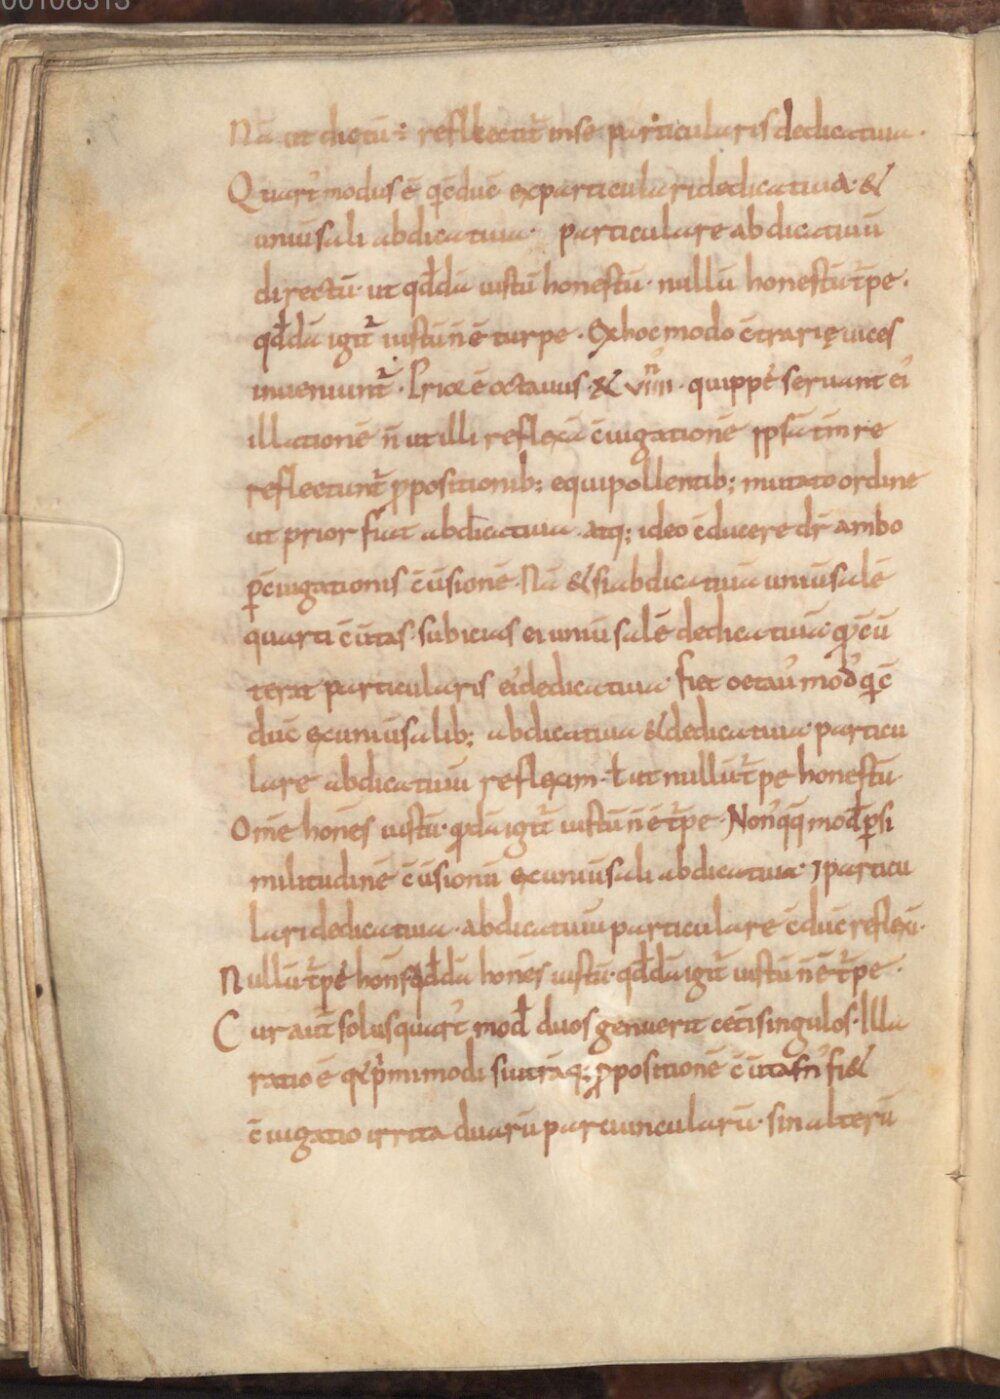 00108313
Nā ut dictū · reflectit̄ in se particularis dedicatiua ·
Quart᾽ modus ē q̄ c̄duc̄ ex particulari dedicatiua · &
uniūsali abdicatiua · particulare abdicatiuū
directū · ut qđdā iustū honestū · nullū honestū t̄pe ·
qđdā igit̄ iustū n̄ ē turpe · Ex hoc modo c̄trarię uices
inueniunt̄ · Prior ē octauus · & viiii · quippe seruant ei᾽
illationē n̄ ut illi reflexā c̄iugationē ipsā t̄m re
reflectunt̄ ꝓpositionib; equipollentib; mutato ordine
ut prior fiat abdicatiua · atq; ideo c̄ducere dr̄ ambo
ꝑ c̄iugationis c̄ūsionē · Nā & si abdicatiuā uniūsalē
quarti c̄ūtas · subicias ei uniūsalē dedicatiuā · q̄ c̄ū
terat particularis ei᾽ dedicatiua · fiet octau᾽ mod᾽ q̄ c̄
duc̄ ex uniūsalib; abdicatiua & dedicatiua · particu
lare abdicatiuū reflexim · ł ut nullū t̄pe honestū ·
Om̄e hones iustū · qdā igit̄ iustū n̄ ē t̄pe · Non᾽ q̄q̄ mod᾽ ꝑ si
militudinē c̄ūsionū ex uniūsali abdicatiua · ⁊ particu
lari dedicatiua · abdicatiuū particulare c̄duc̄ reflexī ·
Nullū t̄pe honēs qđdā hones iustū · qđdā igit̄ iustū n̄ ē t̄pe ·
Cur aut̄ solus quart᾽ mod᾽ duos genuerit cet̄i singulos · Illa
ratio ē q̄ p̄mi modi si utrāq; ꝓpositionē c̄ūtas n̄ fi&
c̄iugatio irrita duarū particularū · sin alterū